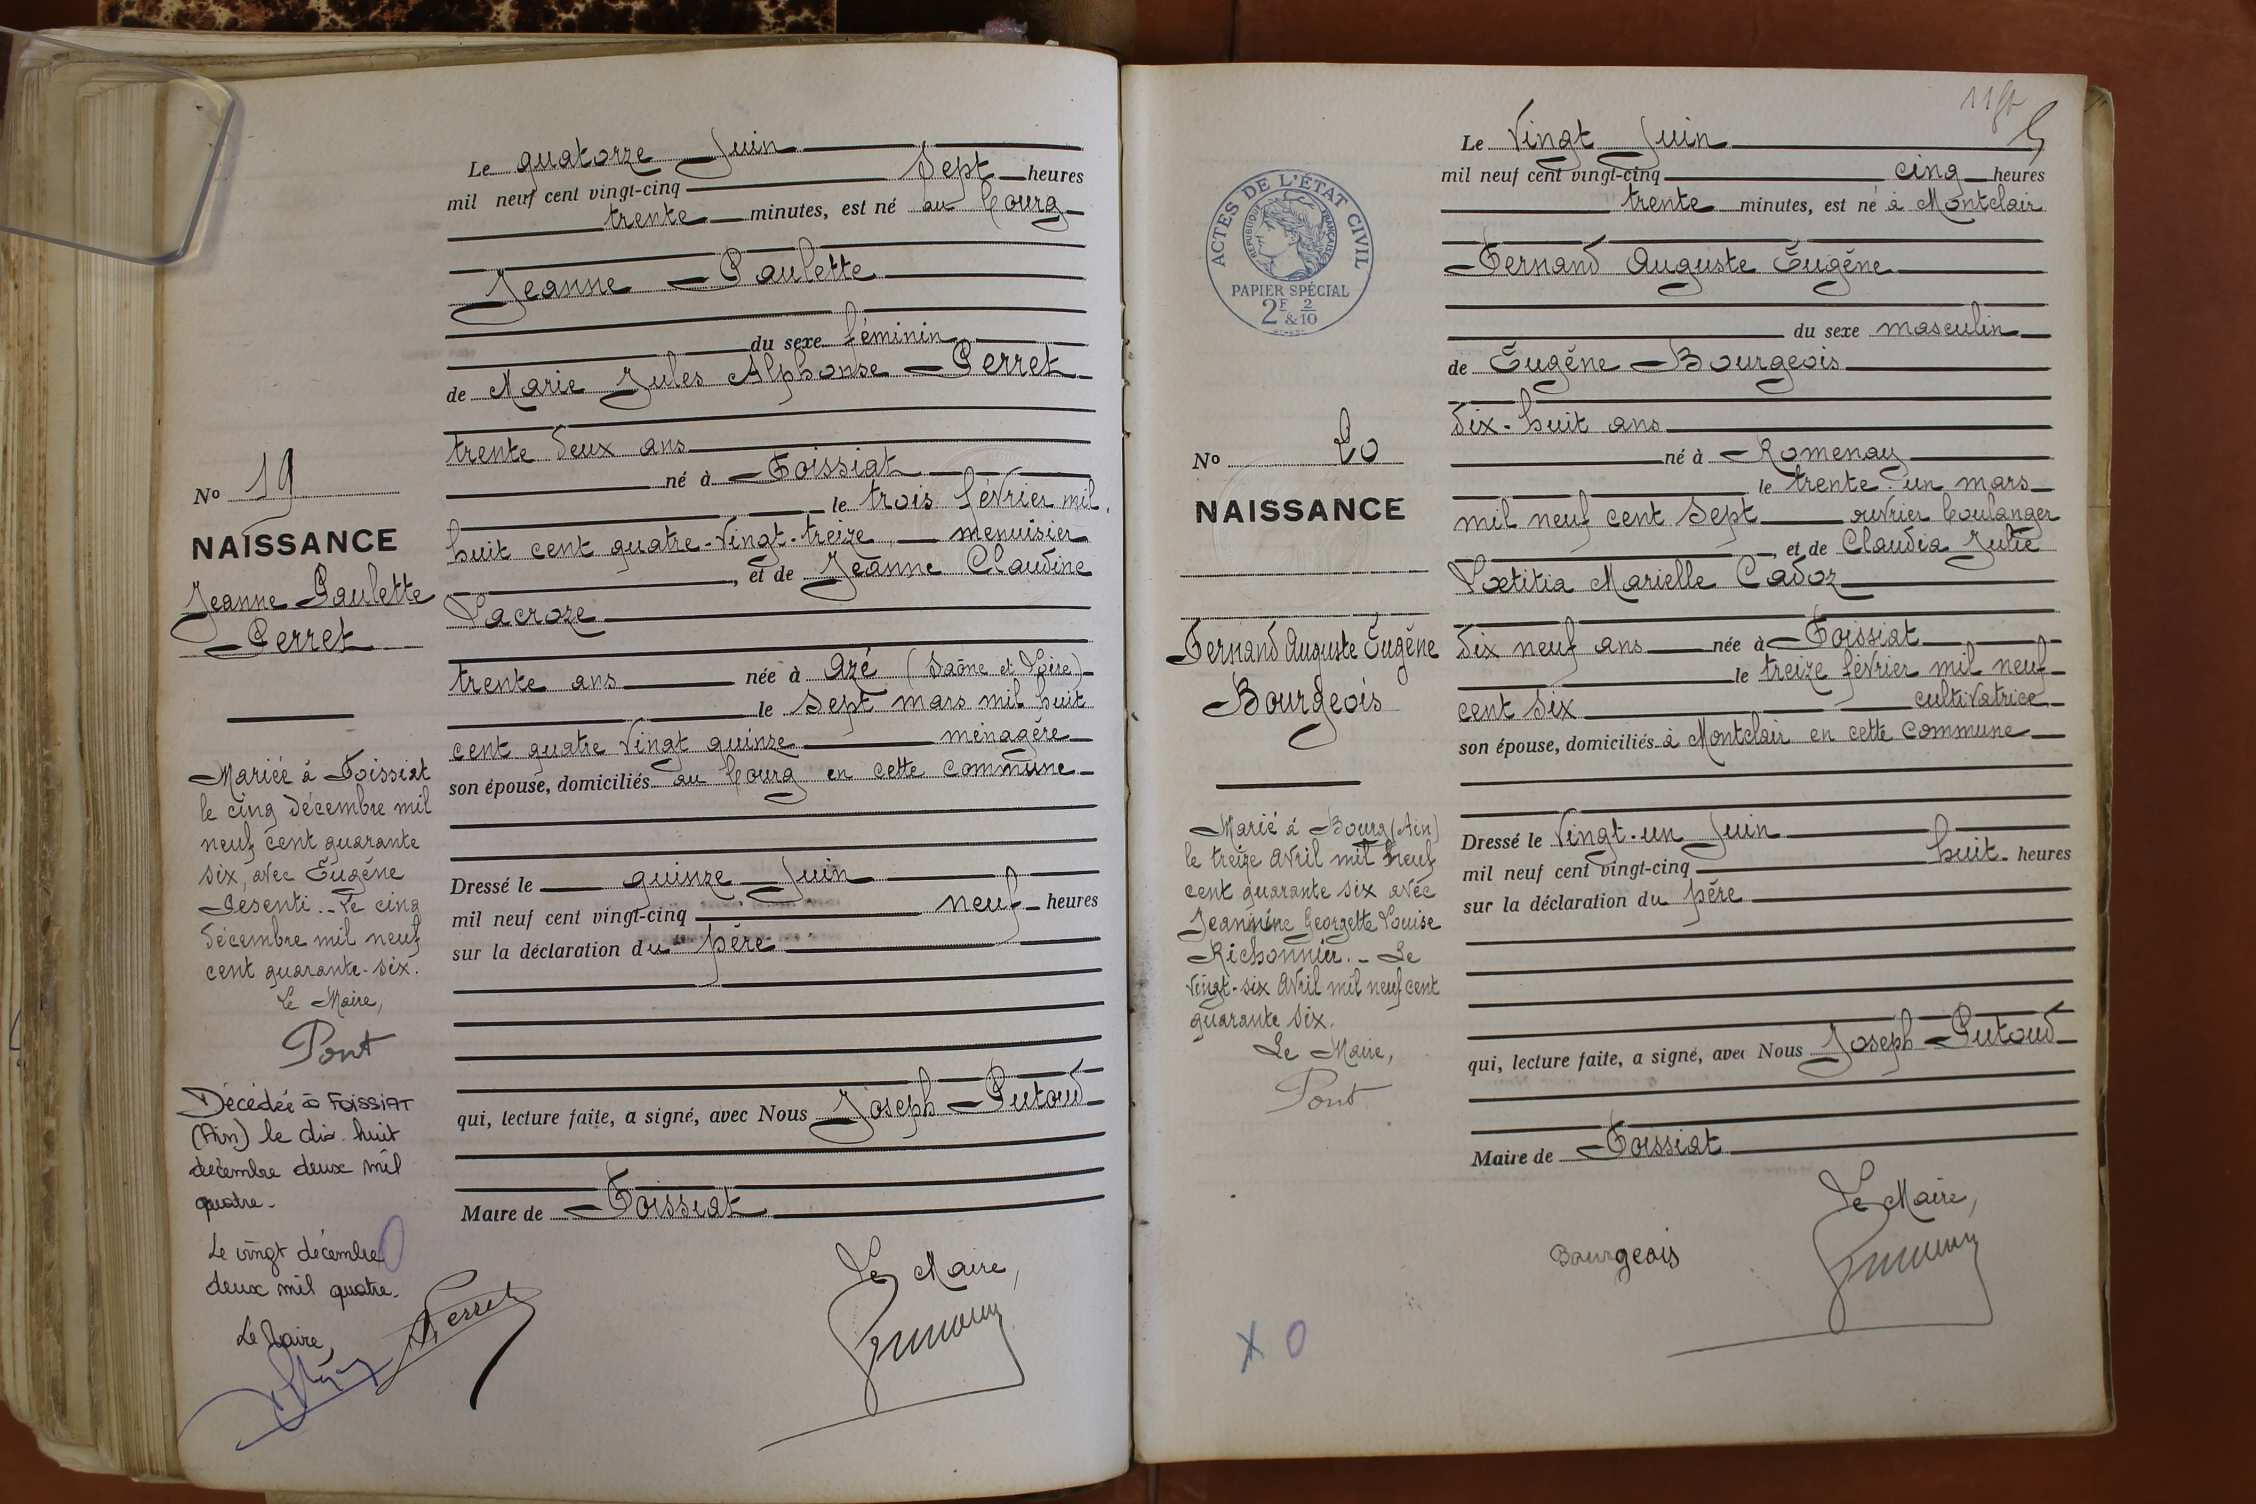 Le quatorze Juin
mil neuf cent vingt-cinq sept heures
trente minutes, est né au bourg
Jeanne Paulette
du sexe féminin
de Marie Jules Alphonse Perret
trente deux ans
né à Foissiat
le trois février mil
huit cent quatre-vingt-treize, menuisier
, et de Jeanne Claudine
Lacroze
trente ans née à Azé (Saône et Loire)
le sept mars mil huit
cent quatre vingt quinze ménagère
son épouse, domiciliés au bourg en cette commune
Dressé le quinze Juin
mil neuf cent vingt-cinq neuf heures
sur la déclaration du père
qui, lecture faite, a signé, avec Nous Joseph Putoud
Maire de Foissiat
Le Maire,
Perret
No 19
NAISSANCE
Jeanne Paulette
Perret
Mariée à Foissiat
le cinq décembre mil
neuf cent quarante
six, avec Eugène
Pesenti. - Le cinq
décembre mil neuf
cent quarante-six.
Le Maire,
Pont
Décédée à FOISSIAT
(Ain) le dix huit
décembre deux mil
quatre.
Le vingt décembre
deux mil quatre.
Le Maire,
Le Vingt Juin
mil neuf cent vingt-cinq cinq heures
trente minutes, est né à Montclair
Fernand Auguste Eugène
du sexe masculin
de Eugène Bourgeois
dix-huit ans
né à Romenay
le trente-un mars
mil neuf cent sept ouvrier boulanger
, et de Claudia Julie
Lætitia Marielle Cadoz
dix neuf ans née à Foissiat
le treize février mil neuf
cent six cultivatrice
son épouse, domiciliés à Montclair en cette commune
Dressé le Vingt-un Juin
mil neuf cent vingt-cinq huit heures
sur la déclaration du père
qui, lecture faite, a signé, avec Nous Joseph Putoud
Maire de Foissiat
Le Maire,
Bourgeois
ACTES DE L'ÉTAT CIVIL
RÉPUBLIQUE FRANÇAISE
PAPIER SPÉCIAL
2F & 2/10
No 20
NAISSANCE
Fernand Auguste Eugène
Bourgeois
Marié à Bourg (Ain)
le treize Avril mil neuf
cent quarante six avec
Jeannine Georgette Louise
Richonnier. - Le
vingt-six Avril mil neuf cent
quarante six.
Le Maire,
Pont
X 0